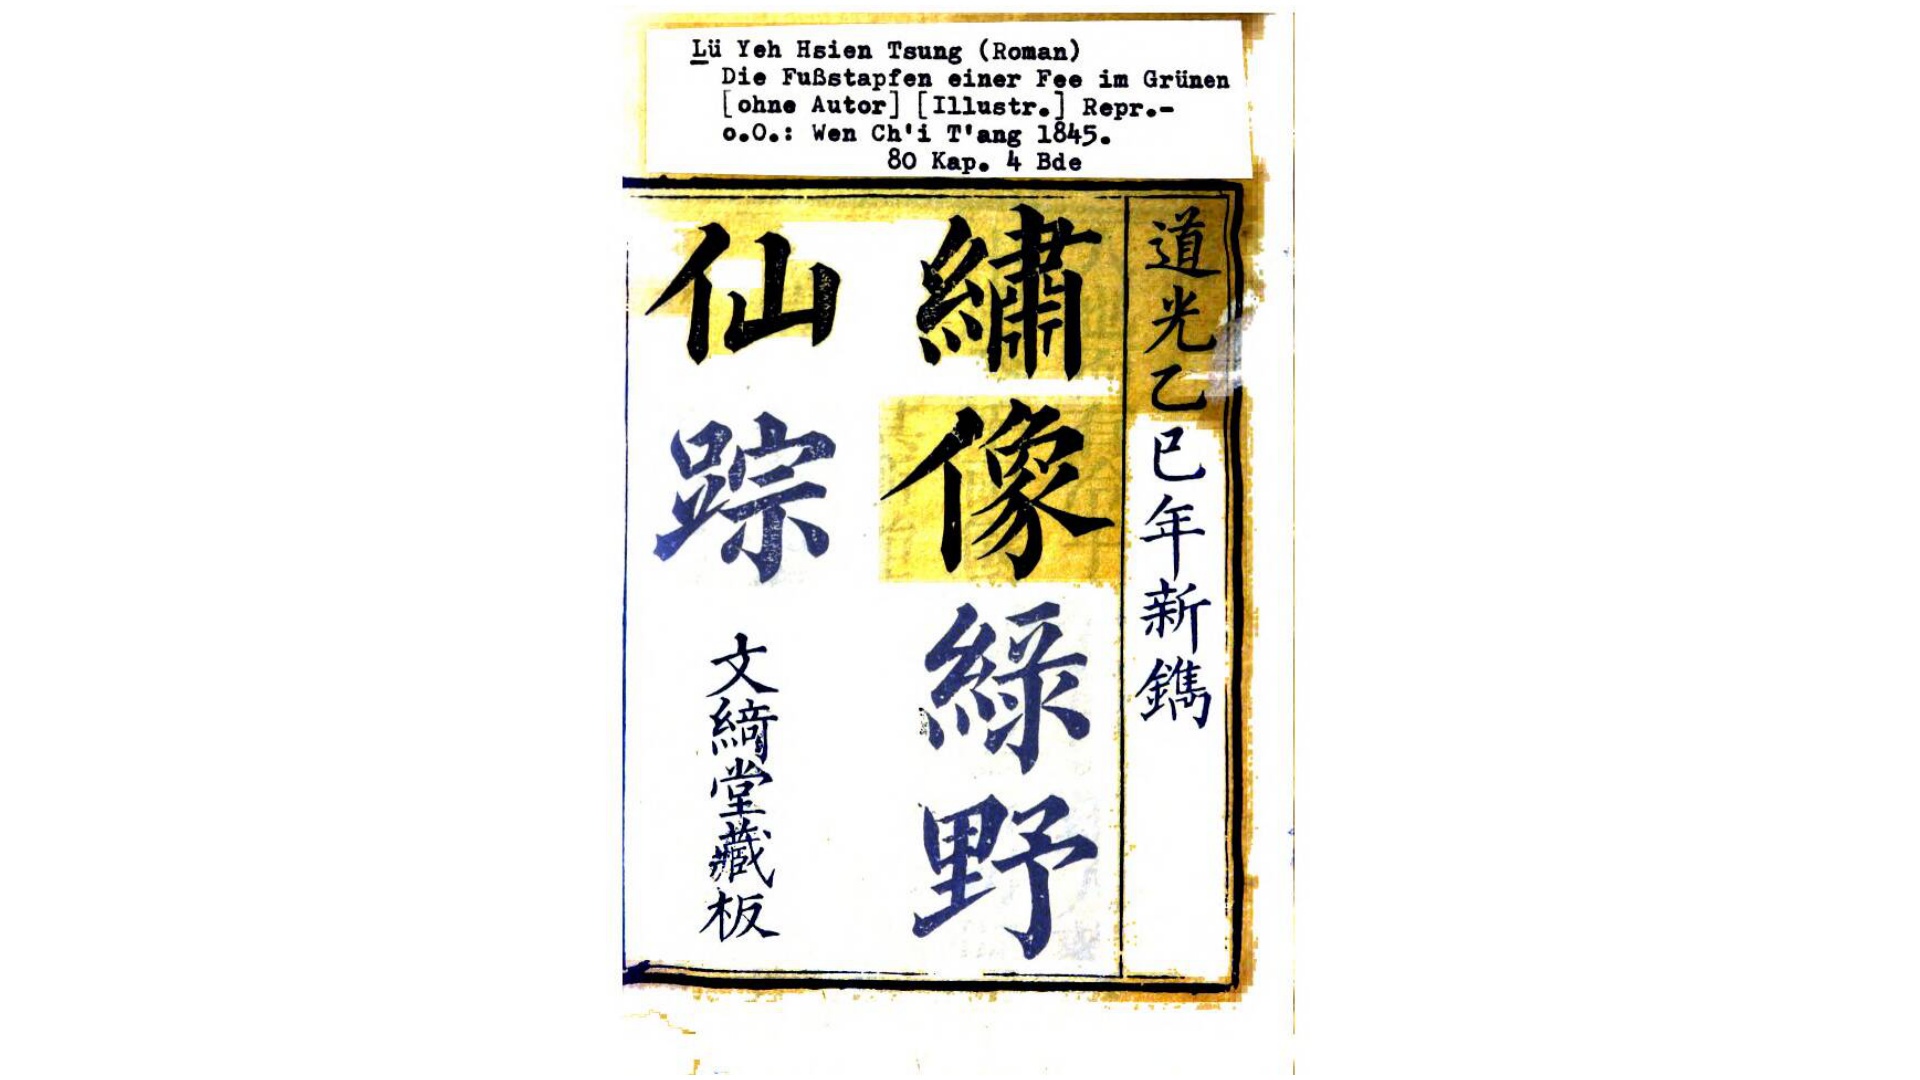 Lü Yeh Hsien Tsung (Roman)
Die Fußstapfen einer Fee im Grünen
[ohne Autor] [Illustr.] Repr.-
o.O.: Wen Ch'i T'ang 1845.
80 Kap. 4 Bde
道光乙巳年新鐫
繡像綠野
仙踪
文綺堂藏板